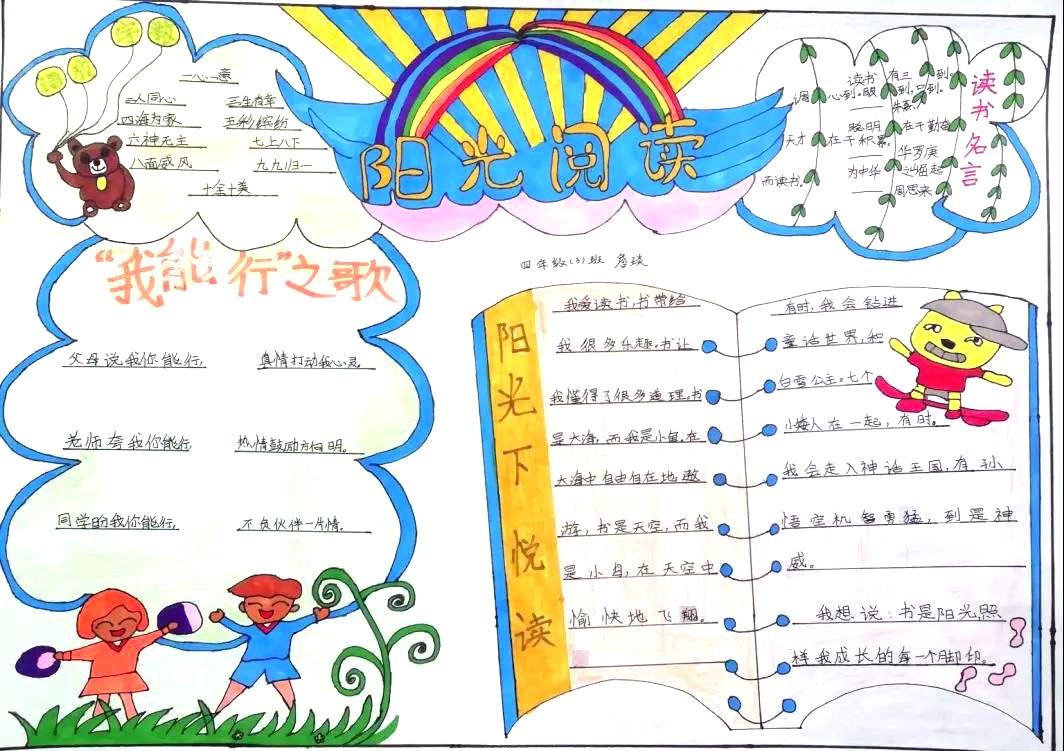 阳光阅读
学数
语
一心一意
二人同心 三生有幸
四海为家 五彩缤纷
六神无主 七上八下
八面威风 九九归一
十全十美
读书名言
读书有三到。
心到。眼到，口到。
朱熹
聪明在于勤奋
天才在于积累。
华罗庚
为中华之崛起
而读书。
周恩来
四年级(3)班
“我能行”之歌
父母说我你能行， 真情打动我心灵。
老师夸我你能行 热情鼓励方向明。
同学的我你能行， 不负伙伴一片情。
阳光下悦读
我爱读书，书带给
我很多乐趣。书让
我懂得了很多道理。书
是大海，而我是小鱼，在
大海中自由自在地遨
游，书是天空，而我
是小鸟，在天空中
愉快地飞翔。
有时，我会钻进
童话世界，和
白雪公主。七个
小矮人在一起，有时。
我会走入神话王国，有孙
悟空机智勇猛，到是神
威。
我想说：书是阳光照
样我成长的每一个脚印。